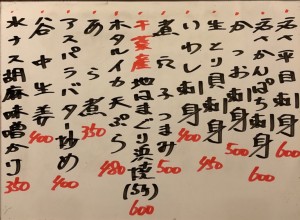 活〆平目刺身 600
活〆かんぱち刺身 600
生かつお刺身 500
生とり貝刺身 450
いわし刺身 400
煮穴子つまみ 500
千葉産 地はまぐり浜焼(5ヶ) 600
ホタルイカ天ぷら 480
あら煮 350
アスパラバター炒め 400
谷中生姜 400
水ナス胡麻味噌かけ 350